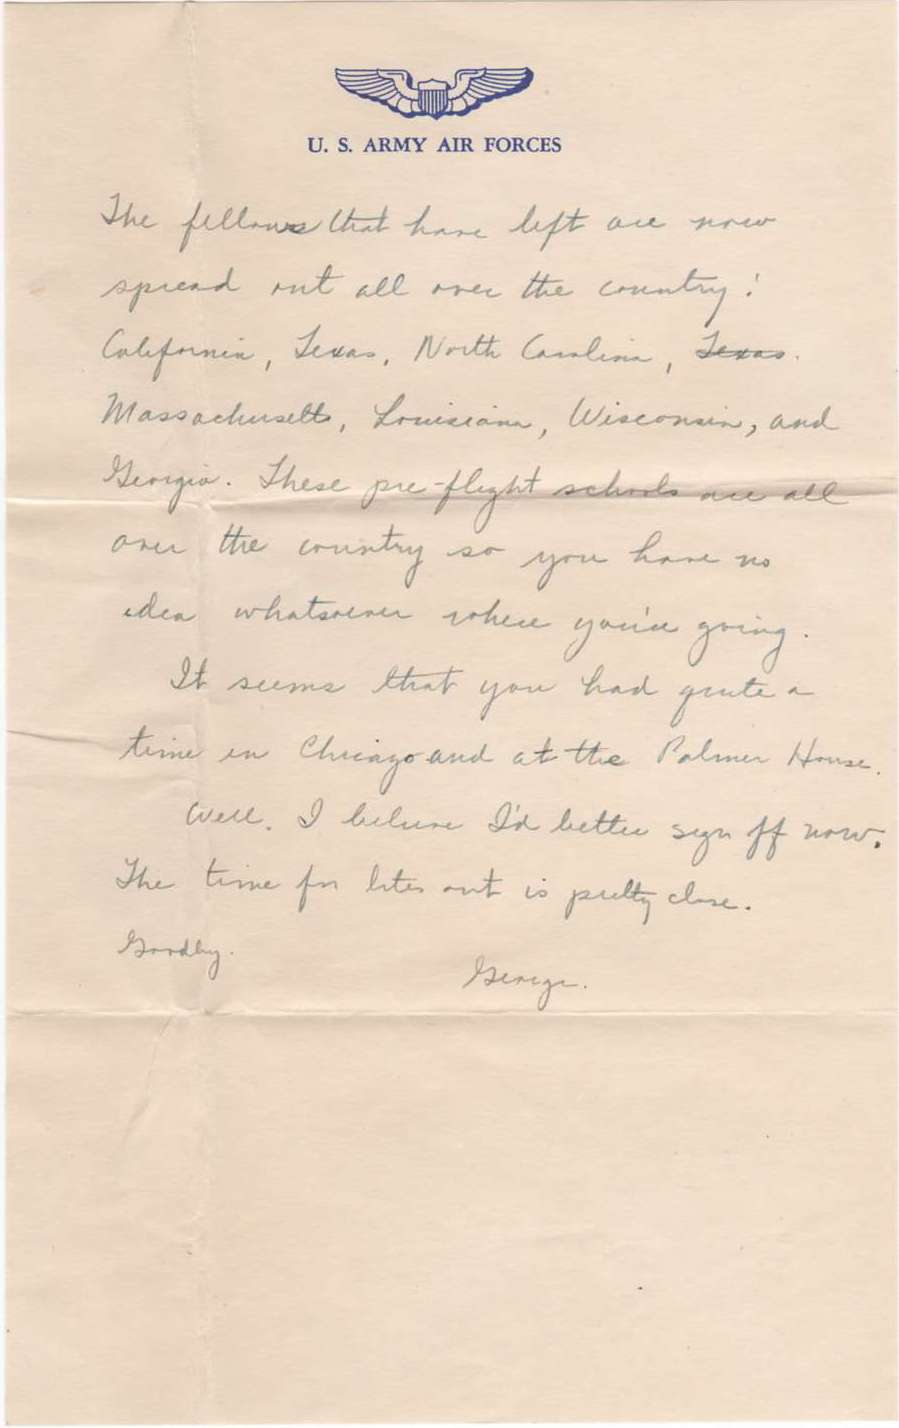 U. S. ARMY AIR FORCES
The fellows that have left are now
spread out all over the country:
California, Texas, North Carolina, ~~Texas~~.
Massachusetts, Louisiana, Wisconsin, and
Georgia. These pre-flight schools are all
over the country so you have no
idea whatsoever where you're going.
It seems that you had quite a
time in Chicago and at the Palmer House.
Well, I believe I'd better sign off now.
The time for lites out is pretty close.
Goodby.
George.